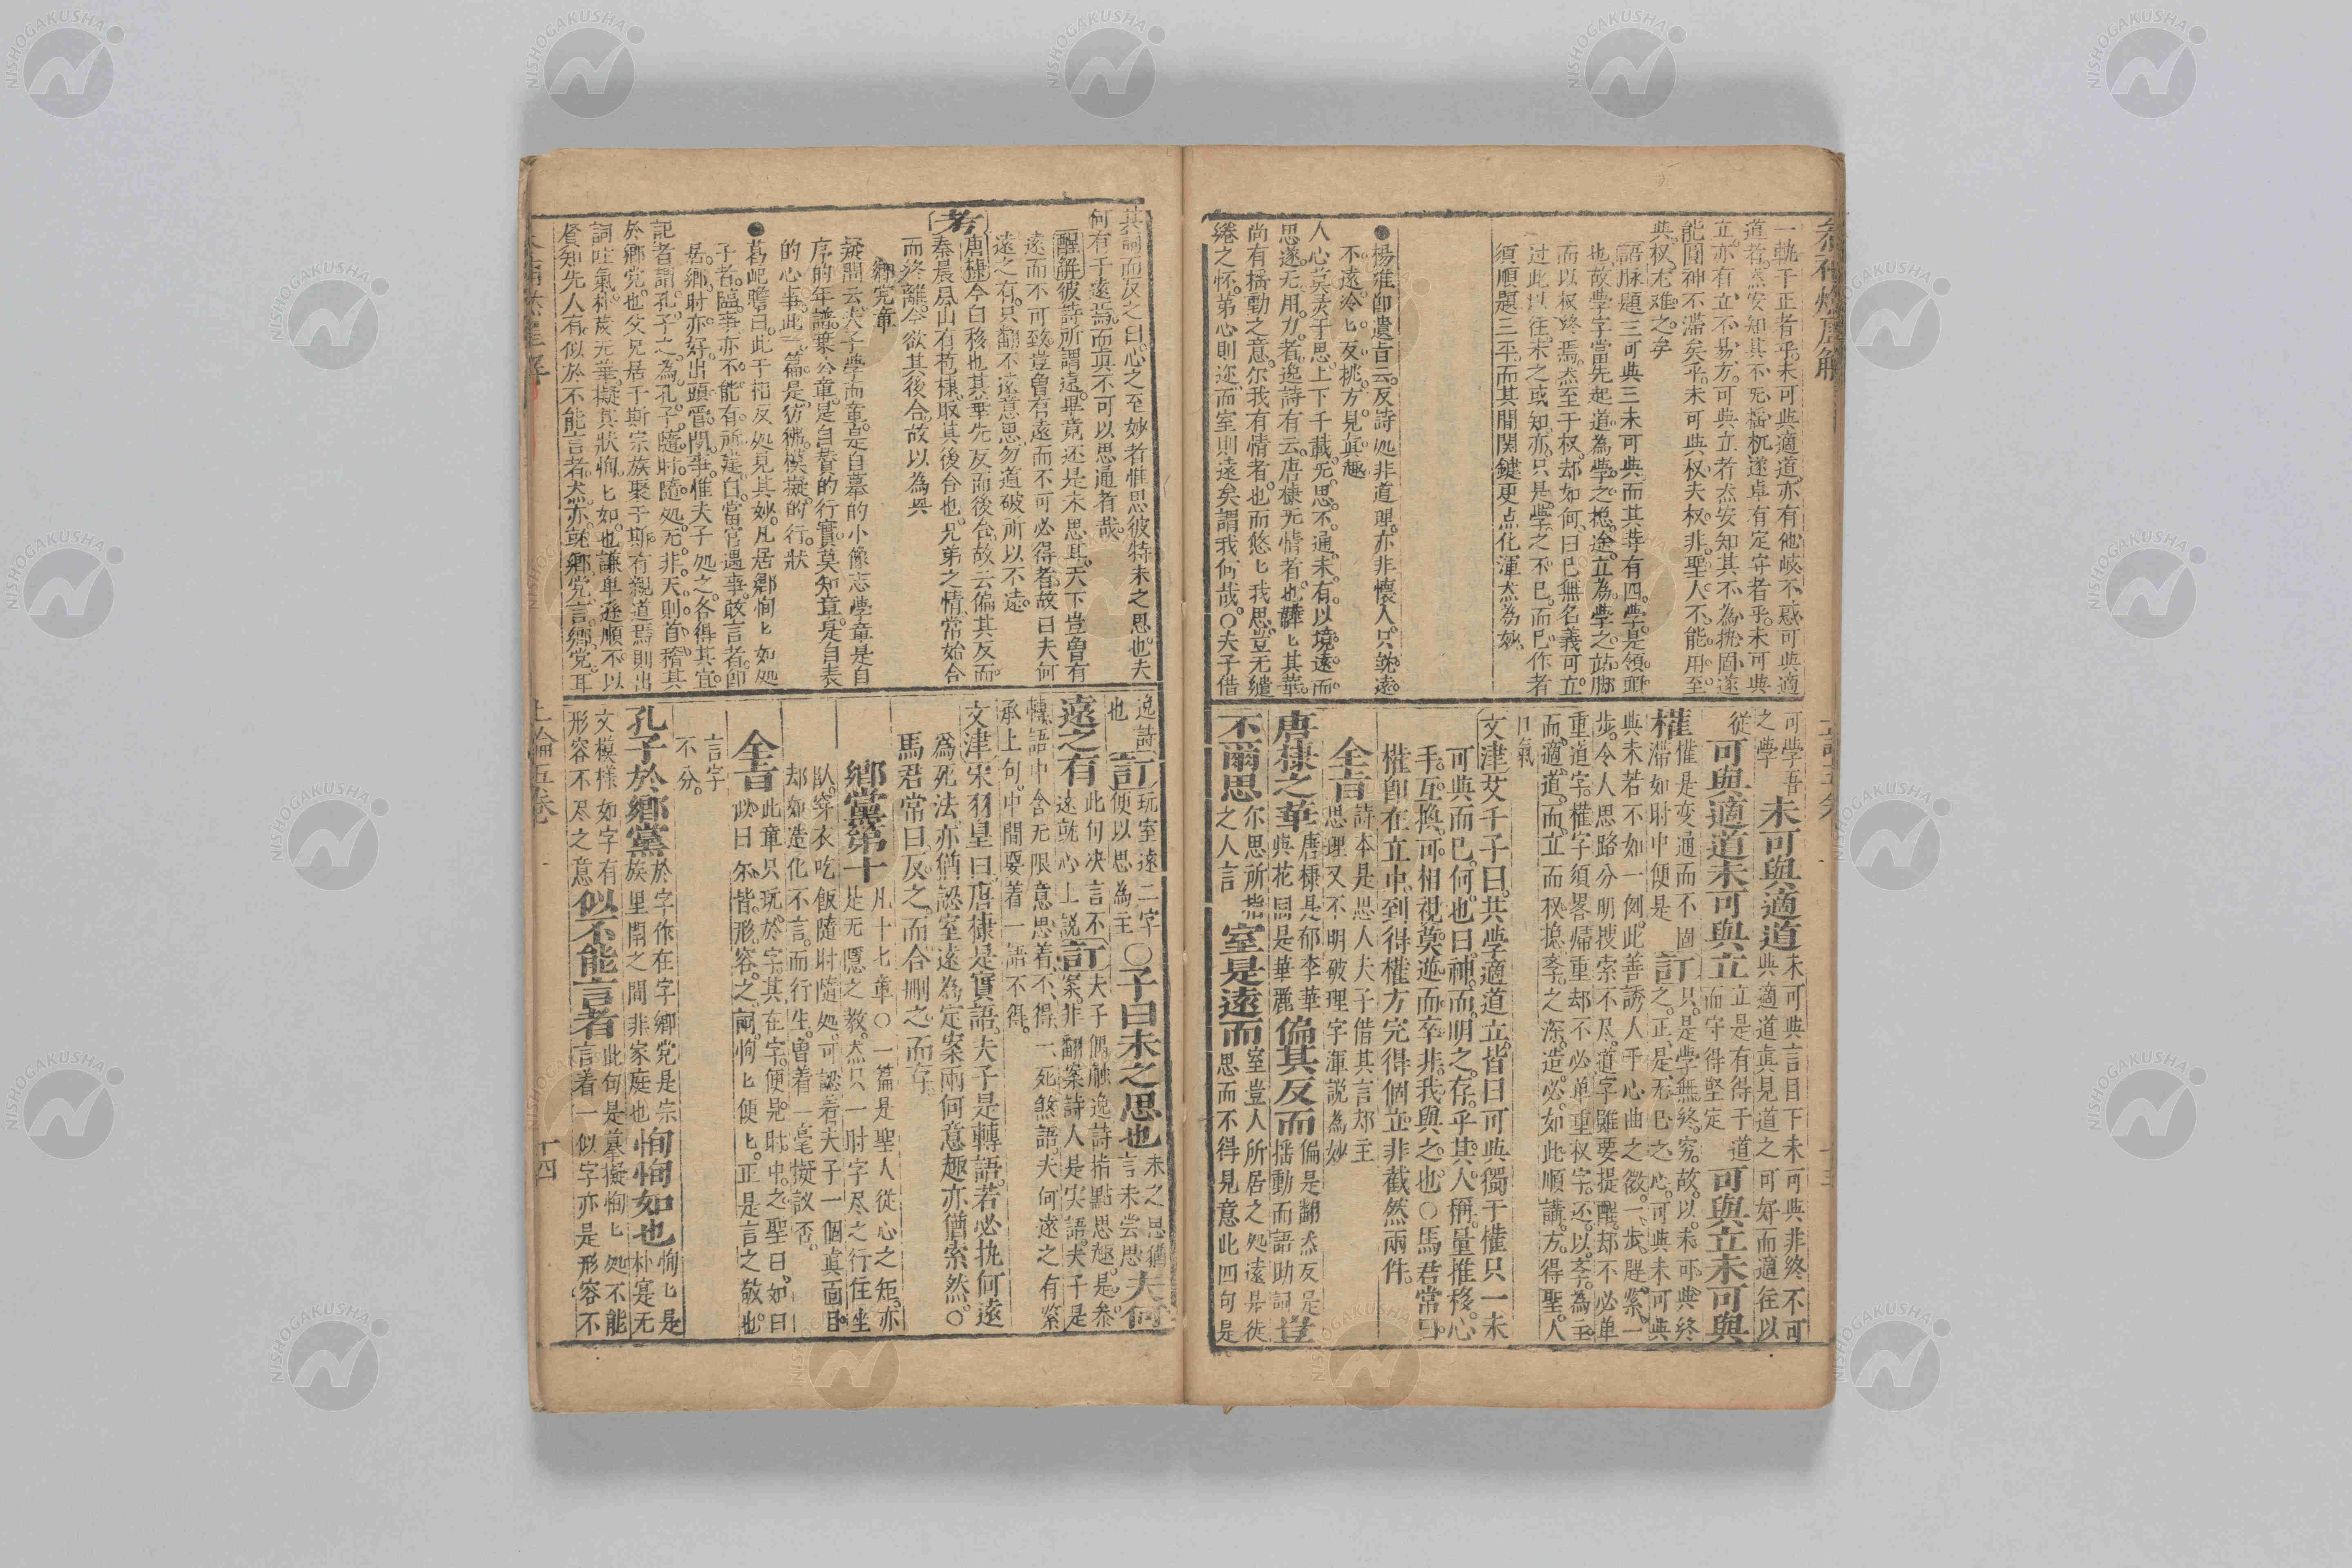 一軌于正者乎未可與適道亦有他岐不惑可與適
道者然安知其不死搖杌遂卓有定守者乎未可與
立亦有立不易方可與立者然安知其不為拘固遂
能圓神不滯矣乎未可與权夫权非聖人不能用至
與权尤难之矣
語脉題三可與三未可與而其葬有四學是領頭
也故學字當先起道為學之㧾途立為學之站脚
而以权終焉然至于权却如何曰已無名義可立
过此以往未之或知亦只是學之不已而已作者
須順題三平而其間関鍵更点化渾然為妙
●揚雅卽遺旨云反詩处非道理亦非懷人只就遠
不遠冷匕反挑方見眞趣
人心莫灵于思上下千載无思不通未有以境遠而
思遂无用力者逸詩有云唐棣无情者也韡匕其華
尚有搖動之意尔我有情者也而悠匕我思豈无缱
绻之怀第心則迩而室則遠矣謂我何哉○夫子借
可學吾
之學
未可與適道
未可與言目下未可與非終不可
與適道眞見道之可好而適往以
從
可與適道未可與立
立是有得于道
而守得堅定
可與立未可與
權
權是变通而不固
滯如时中便是
訂
只是學無終穷故以未可與終
之正是无已之心可與未可與
與未若不如一例此善誘人乎心曲之微一步緊一
步令人思路分明搜索不尽道字雖要提醒却不必单
重道字權字須畧帰重却不必单重权字还以孝為主
而適道而立而权㧾孝之深造必如此順講方得聖人
口氣
文津
艾千子曰共學適道立皆曰可與獨于權只一未
可與而已何也曰神而明之存乎其人稱量推移心
手互換可相視莫逆而卒非我與之也○馬君常曰
權卽在立中到得權方完得個立非截然兩件
全旨
詩本是思人夫子借其言却主
思理又不明破理字渾説為妙
唐棣之華
唐棣是郁李華
與花同是華麗
偏其反而
偏是翻然反是
搖動而語助詞
豈
不爾思
尔思所指
之人言
室是遠而
室豈人所居之处遠是徙
思而不得見意此四句是
其詞而反之曰心之至妙者惟思彼特未之思也夫
何有于遠焉而眞不可以思通者哉
醒解
彼詩所謂遠畢竟还是未思耳天下豈曽有
遠而不可致豈曽有遠而不可必得者故曰夫何
遠之有只翻不遠意思勿道破所以不遠
考
唐棣今白栘也其華先反而後合故云偏其反而
秦晨風山有苞棣取其後合也兄弟之情常始合
而終離今欲其後合故以為興
鄉党章
疑問云夫子學而章是自摹的小像志學章是自
序的年譜葉公章是自賛的行實莫知章是自表
的心事此一篇是彷彿模擬的行狀
●葛屺瞻曰此于相反处見其妙凡居鄉恂匕如处
子者臨事亦不能有所建白當官遇事敢言者卽
居鄉时亦好出頭管閒事惟夫子处之各得其宜
記者謂孔子之為孔子隨时隨处无非天則首稽其
於鄉党也父兄居于斯宗族聚于斯有親道焉則出
詞吐氣朴茂无華擬其狀恂匕如也謙卑遜順不以
賢知先人有似於不能言者然亦就鄉党言鄉党耳
逸詩
也
訂
玩室遠二字
便以思為主
○子曰未之思也
未之思猶
言未尝思
夫何
遠之有
此句决言不
遠就心上説
訂
夫子偶触逸詩指點思趣是叅
案非翻案詩人是实語夫子是
轉語中含无限意思着不得一死煞語夫何遠之有紧
承上句中間要着一語不得
文津
宋羽皇曰唐棣是實語夫子是轉語若必执何遠
為死法亦猶認室遠為定案兩何意趣亦僧索然○
馬君常曰反之而合刪之而存
鄉黨第十
凡十七章○一篇是聖人從心之矩亦
是无隱之教然只一时字尽之行住坐
臥穿衣吃飯隨时隨处可認着夫子一個眞面目
却如造化不言而行生曽着一毫擬議否
全旨
此章只玩於字其在字便見时中之聖曰如曰
似曰尔皆形容之詞恂匕便匕正是言之敬也
言字
不分
孔子於鄉黨
於字作在字鄉党是宗
族里閈之間非家庭也
恂恂如也
恂匕是
朴寔无
文模様如字有
形容不尽之意
似不能言者
此句是摹擬恂匕处不能
言着一似字亦是形容不
上論五卷
十四